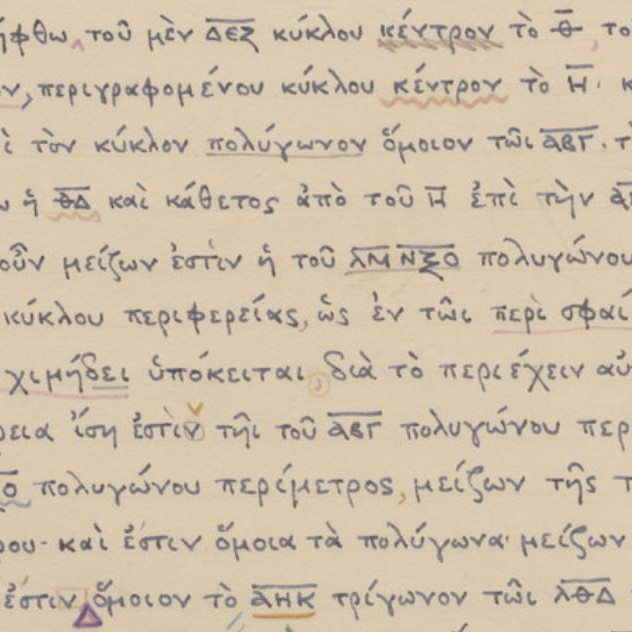 ήφθω, τοῦ μὲν ΔΕΖ κύκλου κέντρον τὸ Θ, το
ν, περιγραφομένου κύκλου κέντρον τὸ Η· κ
ὶ τὸν κύκλον πολύγωνον ὅμοιον τῶι ΑΒΓ· τ
ἡ ΘΔ καὶ κάθετος ἀπὸ τοῦ Η ἐπὶ τὴν
οὖν μείζων ἐστὶν ἡ τοῦ ΛΜΝΞΟ πολυγώνου
κύκλου περιφερείας, ὡς ἐν τῶι περὶ σφαί
χιμήδει ὑπόκειται, διὰ τὸ περιέχειν αὐ
ρεια ἴση ἐστὶν τῆι τοῦ ΑΒΓ πολυγώνου περ
Ο πολυγώνου περίμετρος, μείζων τῆς τ
ρου· καὶ ἐστιν ὅμοια τὰ πολύγωνα· μείζων
ἐστιν ὅμοιον τὸ ΑΗΚ τρίγωνον τῶι ΛΘΔ